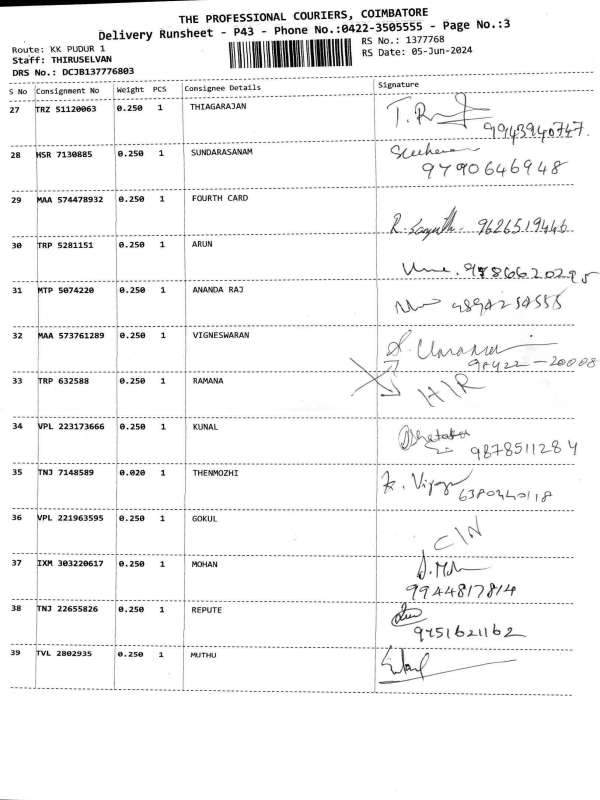 THE PROFESSIONAL COURIERS, COIMBATORE
Delivery Runsheet - P43 - Phone No.:0422-3505555 - Page No.:3
Route: KK PUDUR 1
RS No.: 1377768
Staff: THIRUSELVAN
RS Date: 05-Jun-2024
DRS No.: DCJB137776803
S No Consignment No Weight PCS Consignee Details Signature
27 TRZ 51120063 0.250 1 THIAGARAJAN
9943940747.
28 HSR 7130885 0.250 1 SUNDARASANAM
9790646948
29 MAA 574478932 0.250 1 FOURTH CARD
9626519446
30 TRP 5281151 0.250 1 ARUN
31 MTP 5074220 0.250 1 ANANDA RAJ
9894254555
32 MAA 573761289 0.250 1 VIGNESWARAN
98422-20008
33 TRP 632588 0.250 1 RAMANA
HIR
34 VPL 223173666 0.250 1 KUNAL
9878511284
35 TNJ 7148589 0.020 1 THENMOZHI
6380340118
36 VPL 221963595 0.250 1 GOKUL
CIN
37 IXM 303220617 0.250 1 MOHAN
9944817814
38 TNJ 22655826 0.250 1 REPUTE
9751621162
39 TVL 2802935 0.250 1 MUTHU